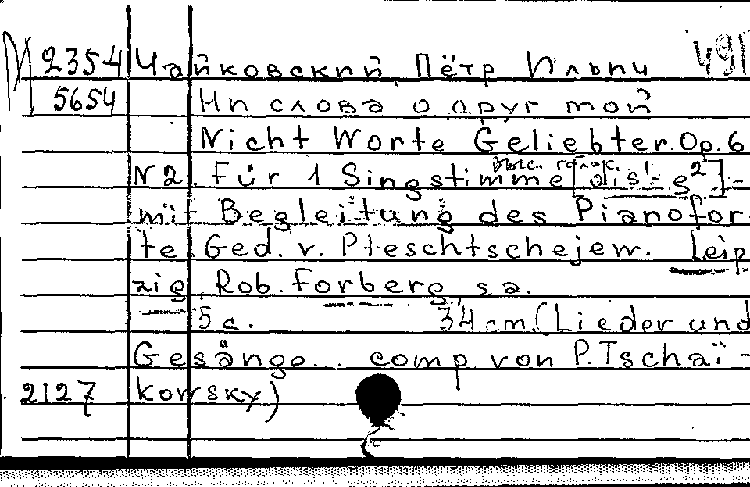 M 2354 Чайковский, Пётр Ильич 491
5654 Ни слова о друг мой
Nicht Worte Geliebter. Op. 6
N 2. Für 1 Singstimme [dis¹-g²]-
mit Begleitung des Pianofor-
te. Ged. v. Pleschtschejew. Leip-
zig, Rob. Forberg, s.a.
5 c. 34 cm (Lieder und
Gesänge... comp. von P. Tschaï-
2127 kowsky)